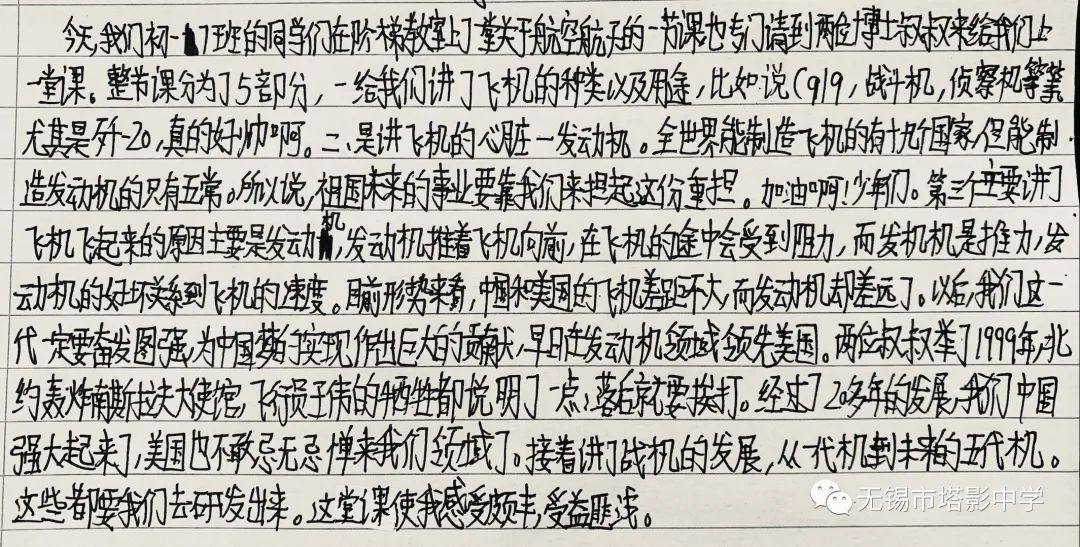 今天,我们初一7班的同学们在阶梯教室上了堂关于航空航天的一节课也专门请到两位博士叔叔来给我们上
一堂课。整节课分为了5部分,一给我们讲了飞机的种类以及用途,比如说C919,战斗机,侦察机等等
尤其是歼-20,真的好帅啊。二、是讲飞机的心脏—发动机。全世界能制造飞机的有十九个国家,但能制
造发动机的只有五常。所以说,祖国未来的事业要靠我们来担起这份重担。加油啊!少年们。第三个主要讲了
飞机飞起来的原因主要是发动机,发动机推着飞机向前,在飞机的途中会受到阻力,而发机机是推力,发
动机的好坏关系到飞机的速度。目前形势来看,中国和美国的飞机差距不大,而发动机却差远了。以后,我们这一
代一定要奋发图强,为中国梦的实现作出巨大的贡献,早日在发动机领域领先美国。两位叔叔举了1999年,北
约轰炸南斯拉夫大使馆,飞行员王伟的牺牲都说明了一点:落后就要挨打。经过了20多年的发展,我们中国
强大起来了,美国也不敢忌无忌惮来我们领域了。接着讲了战机的发展,从一代机到未来的五代机。
这些都要我们去研发出来。这堂课使我感受颇丰,受益匪浅。
无锡市塔影中学